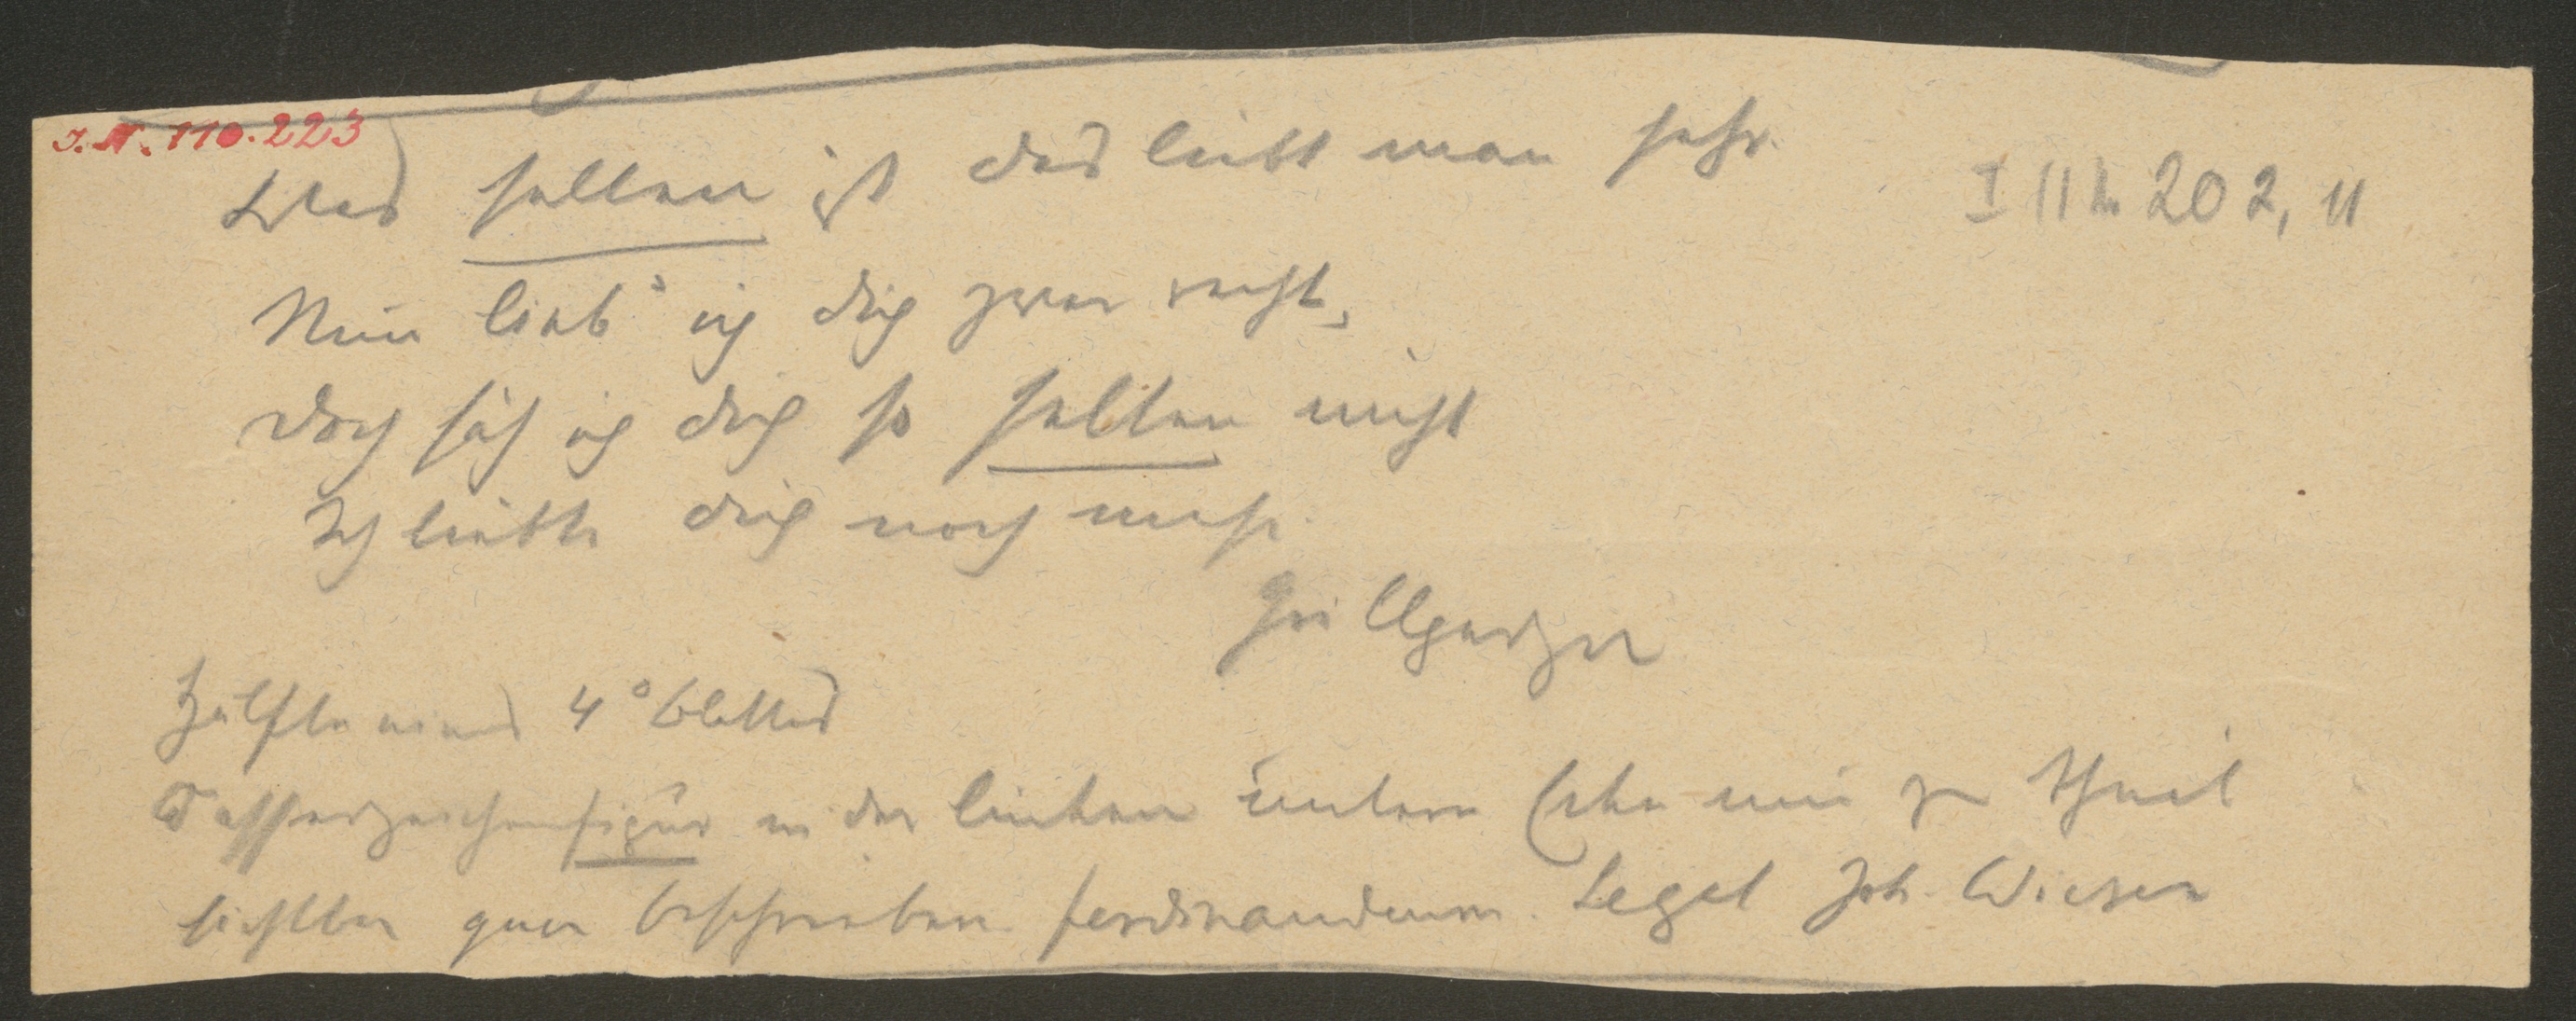 I. N. 110.223
Was selten ist das liebt man sehr.
I 11 h 202, 11
Nun lieb' ich dich zwar recht,
Doch säh ich dich so selten nicht
Ich liebte dich noch mehr.
Grillparzer
Hälfte eines 4° Blattes
Wasserzeichenfigur in der linken untern Ecke nur zu Theil
sichtbar quer beschrieben. Ferdinandeum. Legat Joh. Wieser